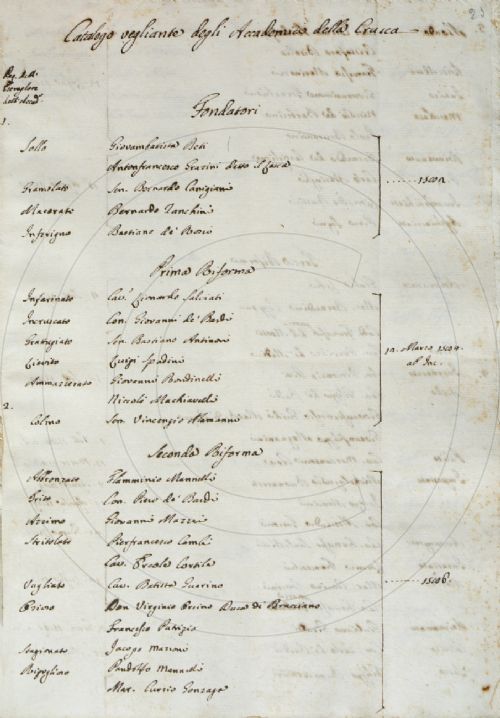 Catalogo vegliante degli Accademici della Crusca
1.
Fondatori
Sollo Giovambatista Deti
Antonfrancesco Grazini detto il Lasca
Gramolato Sen. Bernardo Canigiani
Macerato Bernardo Zanchini
Inferigno Bastiano de' Rossi
Prima Riforma
Infarinato Cav. Lionardo Salviati
Incruscato Con. Giovanni de' Bardi
Grattugiato Sen. Bastiano Antinori
Lievito Luigi Spadini
Ammazzerato Giovanni Rondinelli
Niccolò Machiavelli
2.
Colmo Sen. Vincenzio Alamanni
Seconda Riforma
Abbronzato Flamminio Mannelli
Trito Con. Piero de' Bardi
Azzimo Giovanni Mazzei
Stritolato Pierfrancesco Cambi
Cav. Ercole Cortile
Vagliato Cav. Batista Guarino
Don Virginio Orsino Duca di Bracciano
Francesco Patrizio
Stagionato Jacopo Mazzoni
Ripugliso Pandolfo Mannelli
Mar. Curzio Gonzaga